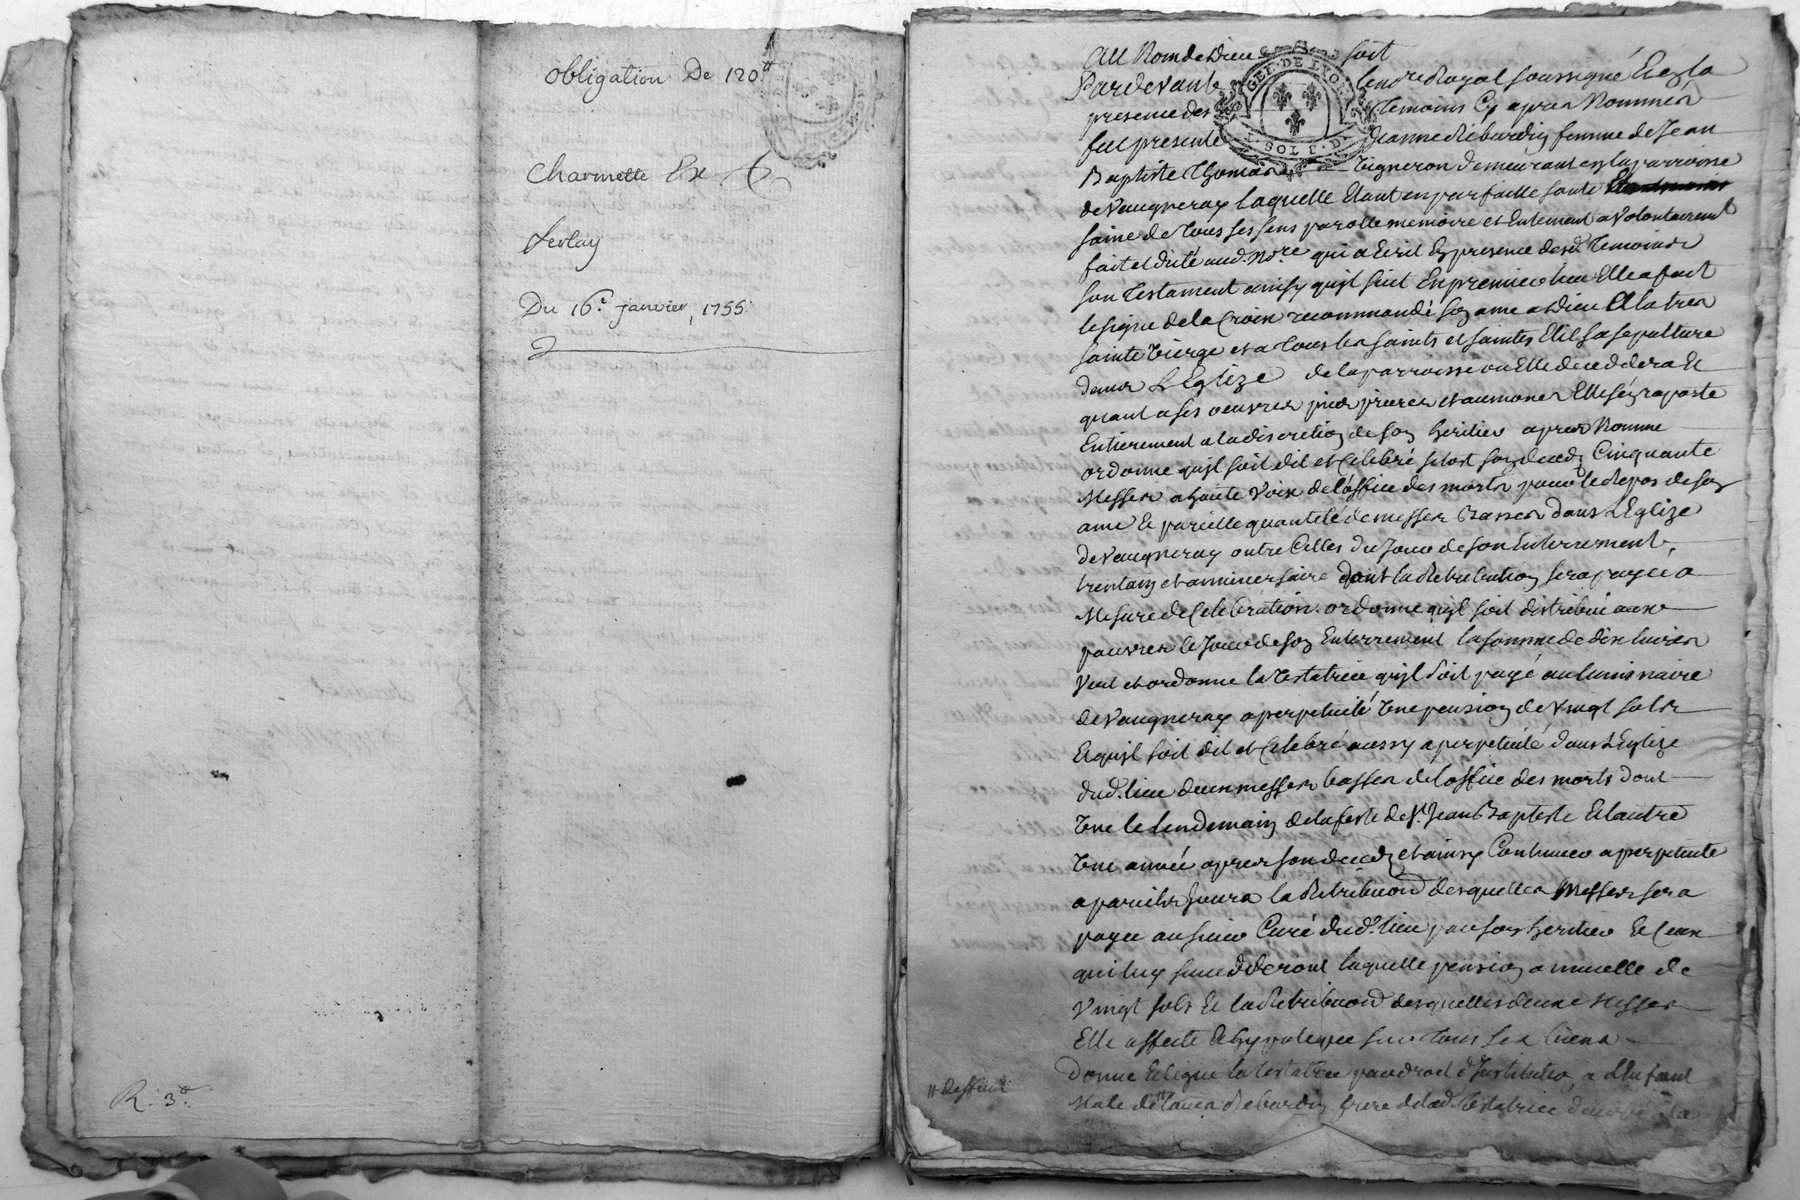 obligation De 120.tt
Charmette Ex
Levlay
Du 16.e janvier, 1755
R. 3.tt
GEN. DE LYON
SOL
Au Nom de Dieu soit
Pardevant le no.re Royal soussigné Et en la
presence des temoins Cy apres Nommés
fut presente Jeanne Rébardin femme de Jean
Baptiste Thomas Vigneron demeurant en la parroisse
de Vaugneray laquelle Etant en parfaitte santé
saine de tous ses sens parolle memoire et Entement a volontairement
fait et dicté aud. No.re qui a Ecrit En presence desd. temoins
son testament ainsy quil suit En premier lieu Elle a fait
le signe de la Croix recommandé son ame a Dieu A la tres
sainte Vierge et a tous les saints et saintes Elit sa sepulture
dans L'Eglize de la parroisse ou Elle deceddera Et
quant a ses oeuvres pies prieres et aumones Elle sen raporte
Entierement a la discretion de son heritier apres Nommé
ordonne quil soit dit et Celebré sitot son deced Cinquante
Messes a haute Voix de l'office des morts pour le Repos de son
ame Et pareille quantité de messes Basses dans L'Eglize
de Vaugneray outre Celles du Jour de son Enterrement,
trentain et anniversaire dont la Retribution sera payée a
Mesure de Celebration. ordonne quil soit distribué aux
pauvres le Jour de son Enterrement la somme de dix livres
Veut et ordonne la testatrice quil soit payé au luminaire
de Vaugneray a perpetuité Une pension de Vingt sols
Et quil soit dit et Celebré aussy a perpetuité dans L'Eglize
dud. lieu deux messes basses de l'office des morts dont
Une le lendemain de la feste de St. Jean Baptiste Et lautre
Une année apres son deced et ainsy Continuer a perpetuité
a pareils Jours la Retribuon desquelles Messes sera
payée au sieur Curé dud. lieu par son heritier Et Ceux
qui luy succedderont laquelle pension annuelle de
Vingt sols Et la Retribuon desquelles deux Messes
Elle affecte Et hypoteque sur tous ses biens
Donne Et legue la testatrice par droit d'Institution, a L'Enfant
Male de Rebardin frere de lad. testatrice